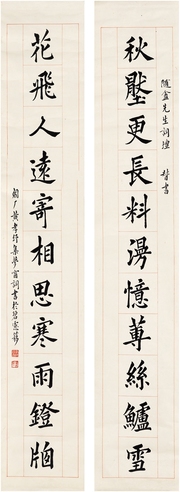 隨盦先生詞壇 督書
秋壓更長料漫憶蓴絲鱸雪
花飛人遠寄相思寒雨鐙牕
匑厂黃孝紓集夢窗詞書於碧慮簃